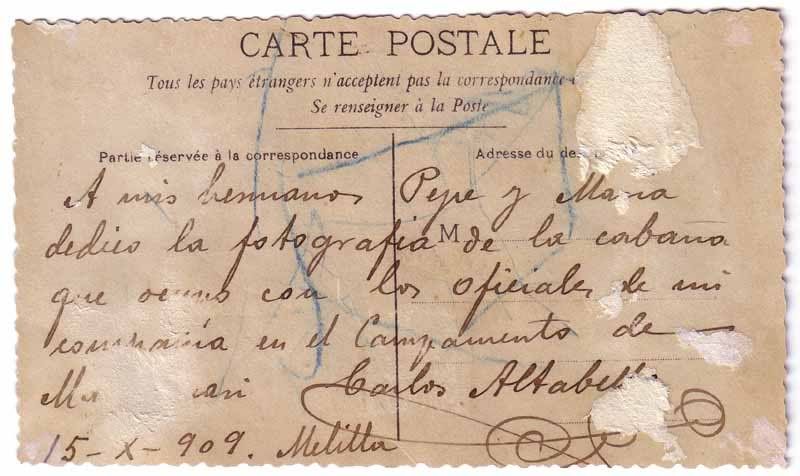 CARTE POSTALE
Tous les pays étrangers n'acceptent pas la correspondance
Se renseigner à la Poste
Partie réservée à la correspondance
Adresse du
A mis hermanos Pepe y Maria
dedico la fotografia M de la cabaña
que ocupo con los oficiales de mi
compañía en el Campamento de
Carlos
15-X-909. Melilla